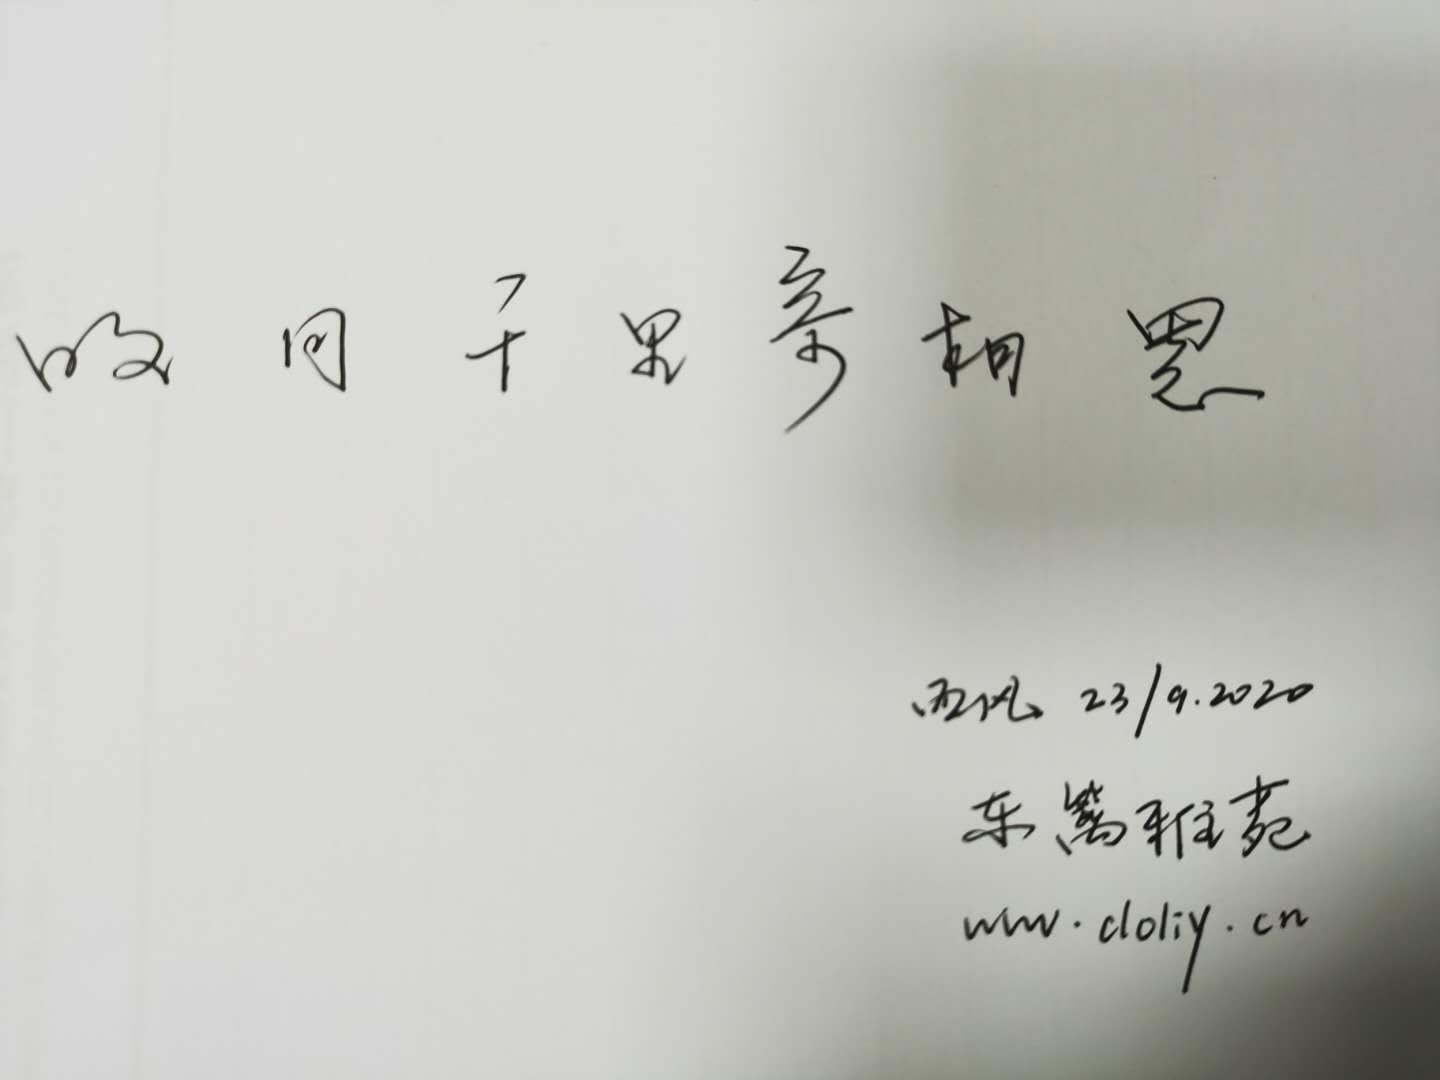 明月千里寄相思
西风 23/9.2020
东篱雅苑
www.doliy.cn